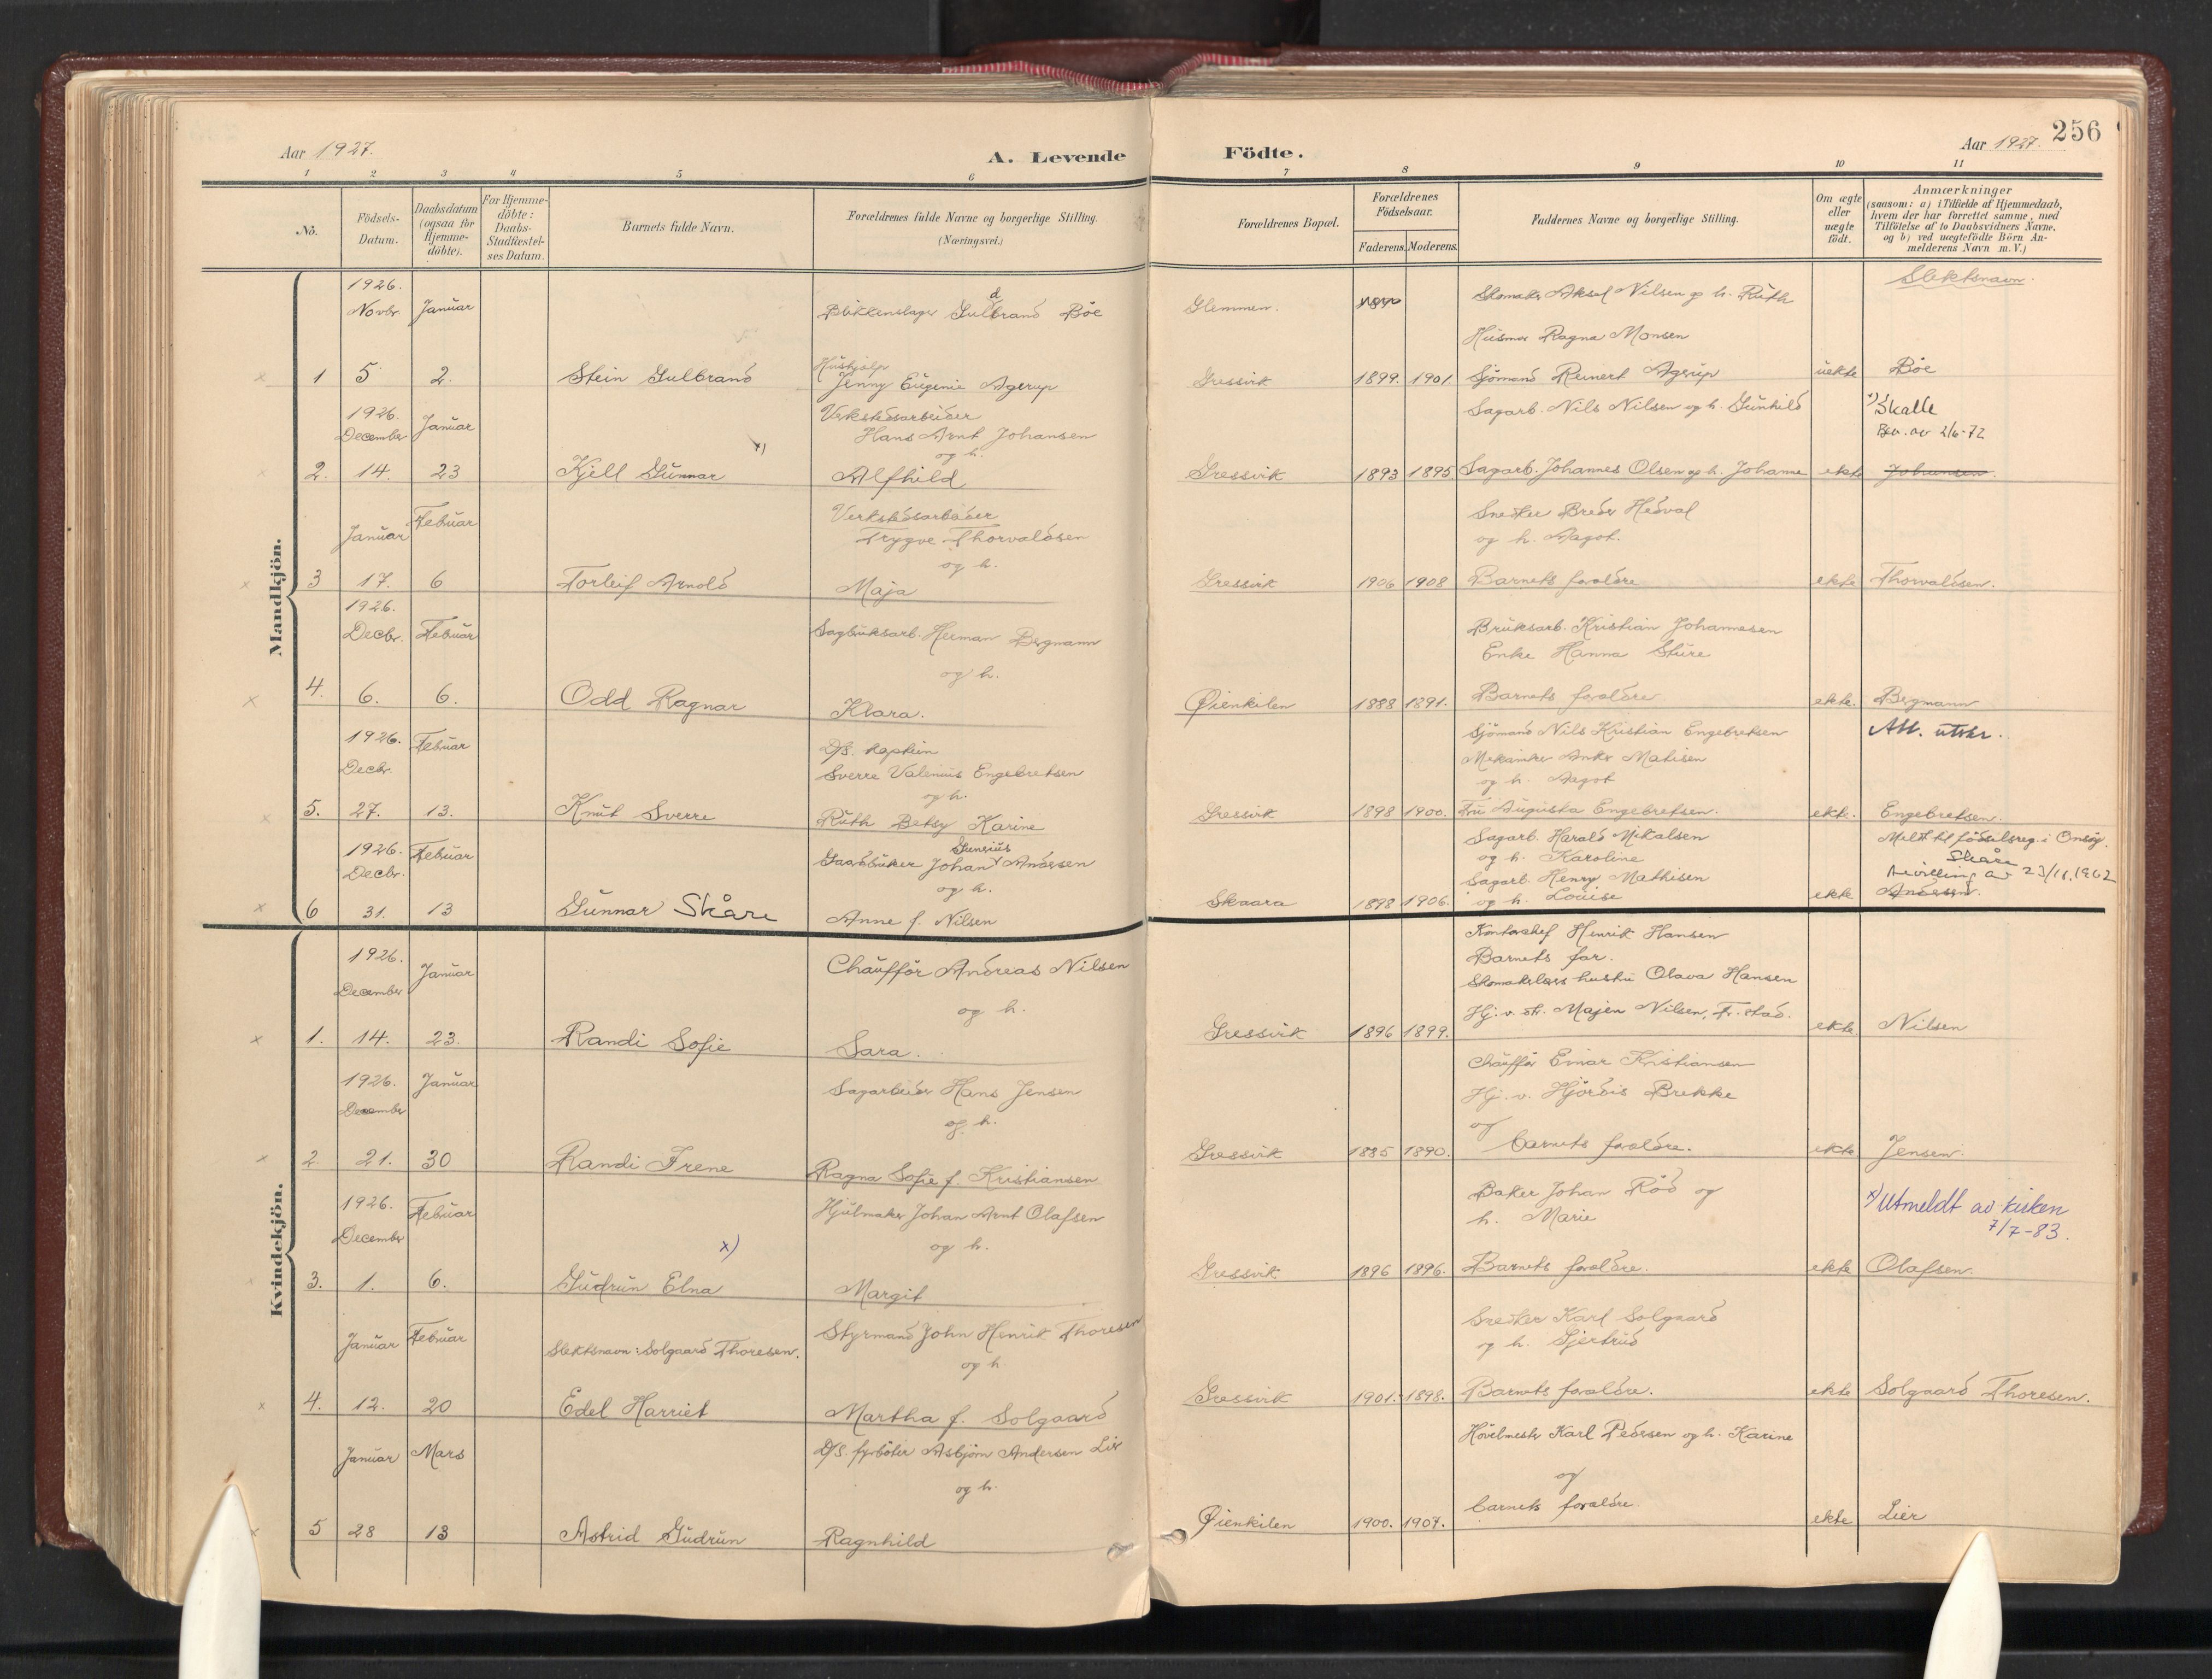 Aar 1927.
A. Levende
Födte.
Aar 1927.
256
1 2 3 4 5 6 7 8 9 10 11
No.
Födsels-
Datum.
Daabsdatum
(ogsaa for
Hjemme-
döbte).
For Hjemme-
döbte:
Daabs-
Stadfæstel-
ses Datum.
Barnets fulde Navn.
Forældrenes fulde Navne og borgerlige Stilling.
(Næringsvei.)
Forældrenes Bopæl.
Forældrenes
Födselsaar.
Faderens. Moderens.
Faddernes Navne og borgerlige Stilling.
Om ægte
eller
uægte
födt.
Anmærkninger
(saasom: a) i Tilfælde af Hjemmedaab,
hvem der har forrettet samme, med
Tilföielse af to Daabsvidners Navne,
og b) ved uægtefödte Börn An-
melderens Navn m.V.)
Slektsnavn.
Mandkjön.
1926.
Novbr. Januar
Blikkenslager Gulbrand Böe
d
Glemmen.
Skomaker Aksel Nilsen og h. Ruth
Husmor Ragna Monsen
Hushjelp
1 5 2. Stein Gulbrand
Jenny Eugenie Agerup
Gressvik 1899. 1901. Sjömand Reinert Agerup uekte Böe
1926.
December Januar
Verkstedsarbeider
Hans Arnt Johansen
og h.
Sagarb. Nils Nilsen og h. Gunhild
x) Skalle
Bev. av 2/6-72
x)
2. 14. 23 Kjell Gunnar
Alfhild
Gressvik 1893 1895. Sagarb. Johannes Olsen og h. Johanne ekte Johansen.
Januar Februar
Verkstedsarbeider
Trygve Thorvaldsen
og h.
Snekker Breder Hedval
og h. Aagot.
3 17. 6 Torleif Arnold
Maja
Gressvik 1906 1908 Barnets foreldre ekte Thorvaldsen.
1926.
Decbr. Februar
Sagbruksarb. Herman Bergmann
og h.
Bruksarb. Kristian Johannesen
Enke Hanna Sture
4. 6. 6. Odd Ragnar
Klara.
Øienkilen 1888 1891. Barnets foreldre ekte. Bergmann
1926. Februar
Decbr.
D/S. kaptein
Sverre Valenius Engebretsen
og h.
Sjömand Nils Kristian Engebretsen
Mekaniker Anker Matisen
og h. Aagot
Att. utstr.
5. 27. 13. Knut Sverre
Ruth Betsy Karine
Gressvik 1898 1900. Fru Augusta Engebretsen. ekte. Engebretsen.
1926. Februar
Decbr.
Gunerius
Gaardbruker Johan Andersen
og h.
Sagarb. Harald Mikalsen
og h. Karoline
Sagarb. Henry Mathisen
og h. Louise
Meldt til födselsreg. i Onsöy.
Skåre
bevilling av 23/11.1962
6 31. 13 Gunnar Skåre
Anne f. Nilsen
Skaara 1898 1906. ekte Andersen.
Kvindekjön.
1926.
December Januar
Chaufför Andreas Nilsen
og h.
Kontorchef Henrik Hansen
Barnets far.
Skomakers hustru Olava Hansen
Hj. v. str. Majen Nilsen, Fr.stad.
1. 14. 23. Randi Sofie
Sara.
Gressvik 1896 1899. ekte Nilsen
1926. Januar
December
Sagarbeider Hans Jensen
og h.
Chaufför Einar Kristiansen
Hj. v. Hjördis Brekke
og
2 21. 30 Randi Irene
Ragna Sofie f. Kristiansen
Gressvik 1885 1890. barnets foreldre. ekte Jensen.
1926. Februar
December
Hjulmaker Johan Arnt Olafsen
og h.
Baker Johan Röd og
h. Marie
x) Utmeldt av kirken
7/7-83.
x)
3. 1. 6. Gudrun Elna
Margit
Gressvik 1896 1896. Barnets foreldre. ekte Olafsen.
Januar Februar
Slektsnavn: Solgaard Thoresen.
Styrmand John Henrik Thoresen
og h
Snekker Karl Solgaard
og h. Gjertrud
4. 12. 20 Edel Harriet
Martha f. Solgaard
Gressvik 1901. 1898. Barnets foreldre. ekte Solgaard Thoresen.
Januar Mars
D/S. fyrböter Asbjörn Andersen Lier
og h.
Hövelmester Karl Pedersen og h. Karine
og
5 28 13 Astrid Gudrun
Ragnhild
Øienkilen 1900. 1907. barnets foreldre. ekte Lier